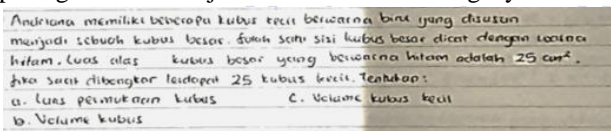 Andriana memiliki beberapa kubus kecil berwarna biru yang disusun
menjadi sebuah kubus besar. salah satu sisi kubus besar dicat dengan warna
hitam. Luas alas kubus besar yang berwarna hitam adalah 25 cm².
Jika saat dibongkar terdapat 25 kubus kecil. Tentukan :
a. Luas permukaan kubus c. Volume kubus kecil
b. Volume kubus